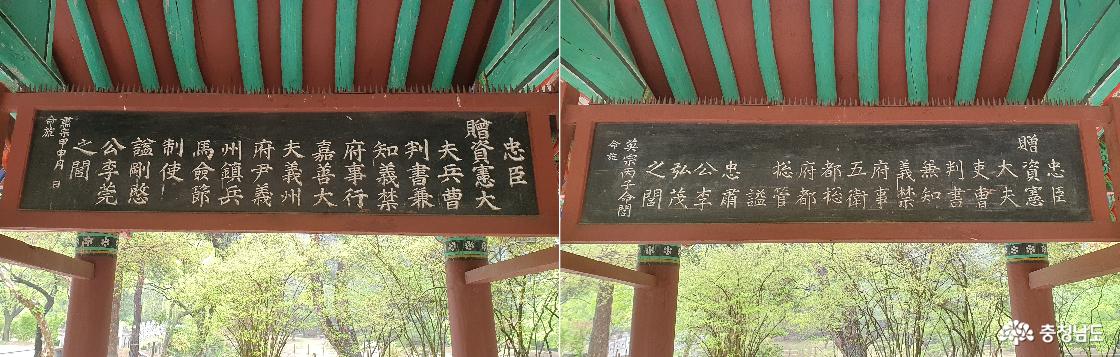 忠臣
贈資憲大
夫兵曹
判書兼
知義禁
府事行
嘉善大
夫義州
府尹義
州鎭兵
馬僉節
制使
諡剛愍
公李莞
之閭
肅宗甲申月 日
命旌
忠臣
贈資憲
大夫
吏曹
判書
無知
義禁
府事
五衛
都総
府都
総管
諡
忠肅
公李
弘茂
之閭
英宗丙子命閭
命旌
충청남도